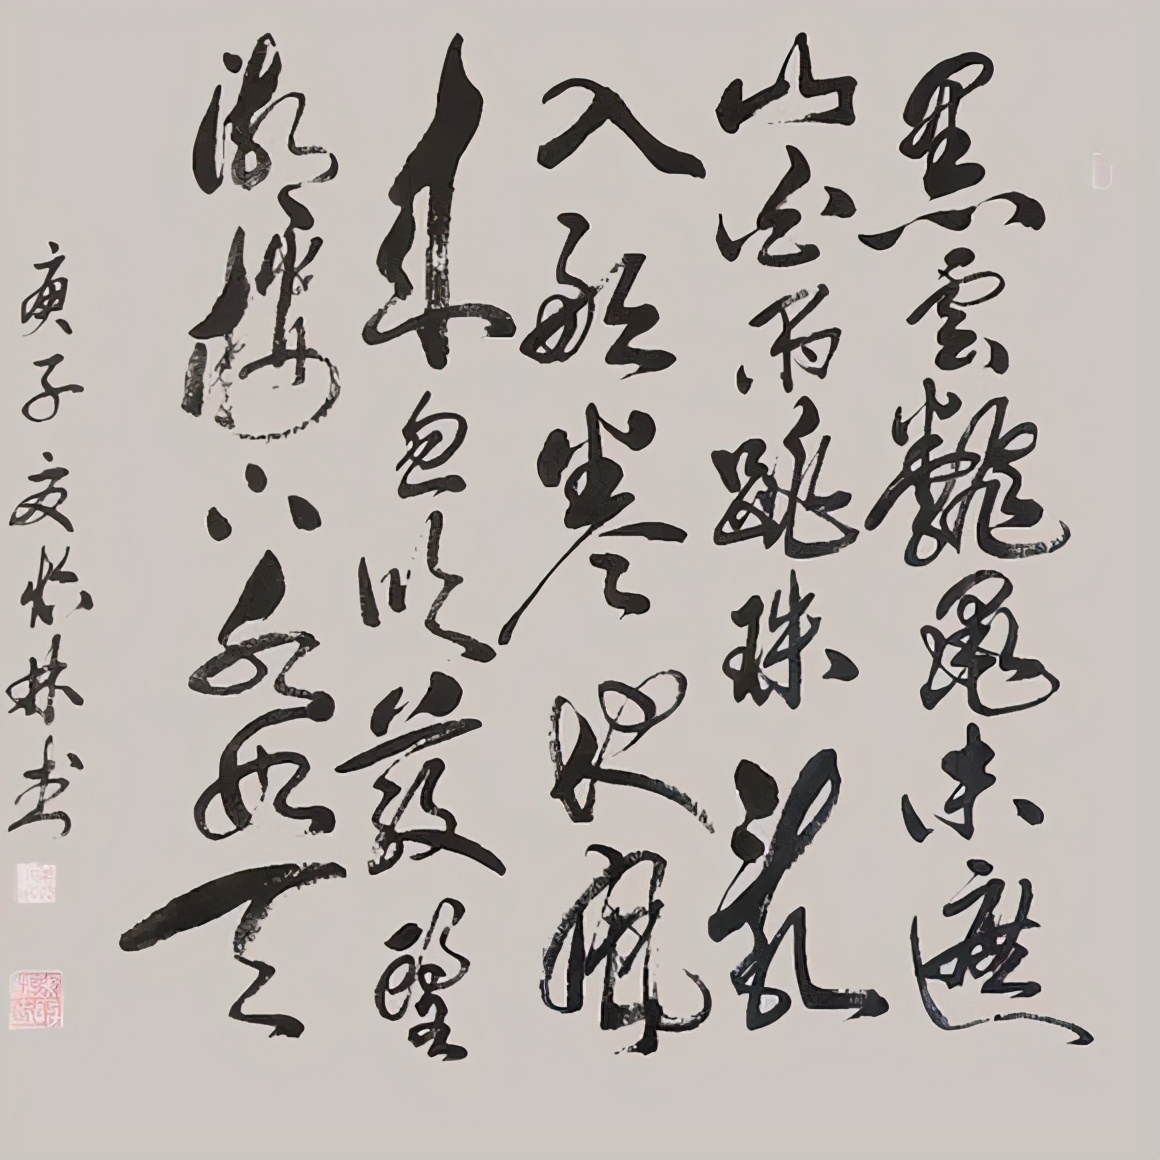 黑雲飜墨未遮
山白雨跳珠亂
入船卷地風
來忽吹散望
湖樓下水如天
庚子夏林书